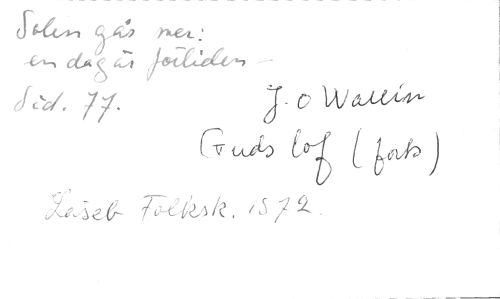 Solen går ner:
en dag är förliden –
Sid. 77.
J. O Wallin
Guds lof (forts)
Läseb Folksk. 1872.